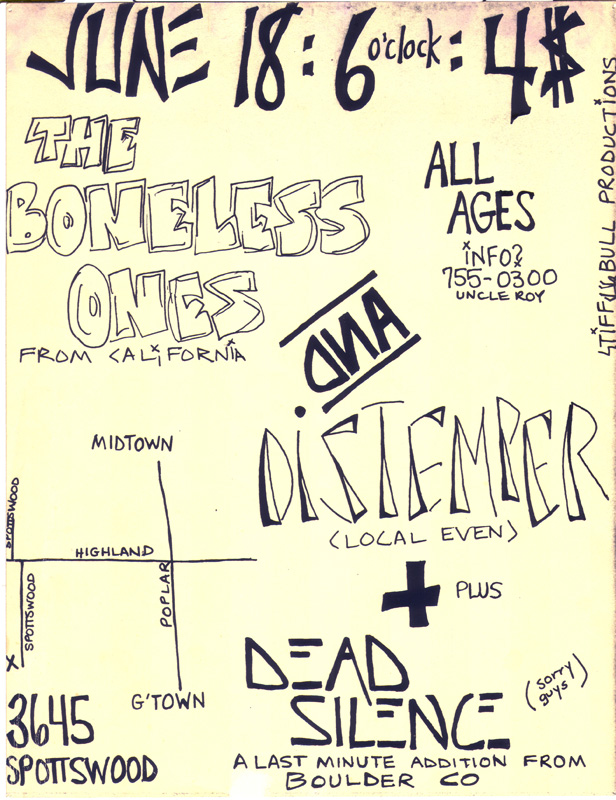 JUNE 18 : 6 o'clock : 4$
STIFF BULL PRODUCTIONS
THE
BONELESS
ONES
FROM CALIFORNIA
ALL
AGES
iNFO?
755-0300
UNCLE ROY
AND
DiSTEMPER
(LOCAL EVEN)
+ PLUS
DEAD
SILENCE
(sorry
guys)
A LAST MINUTE ADDITION FROM
BOULDER CO
MIDTOWN
SPOTTSWOOD
HIGHLAND
SPOTTSWOOD
POPLAR
X
G'TOWN
3645
SPOTTSWOOD